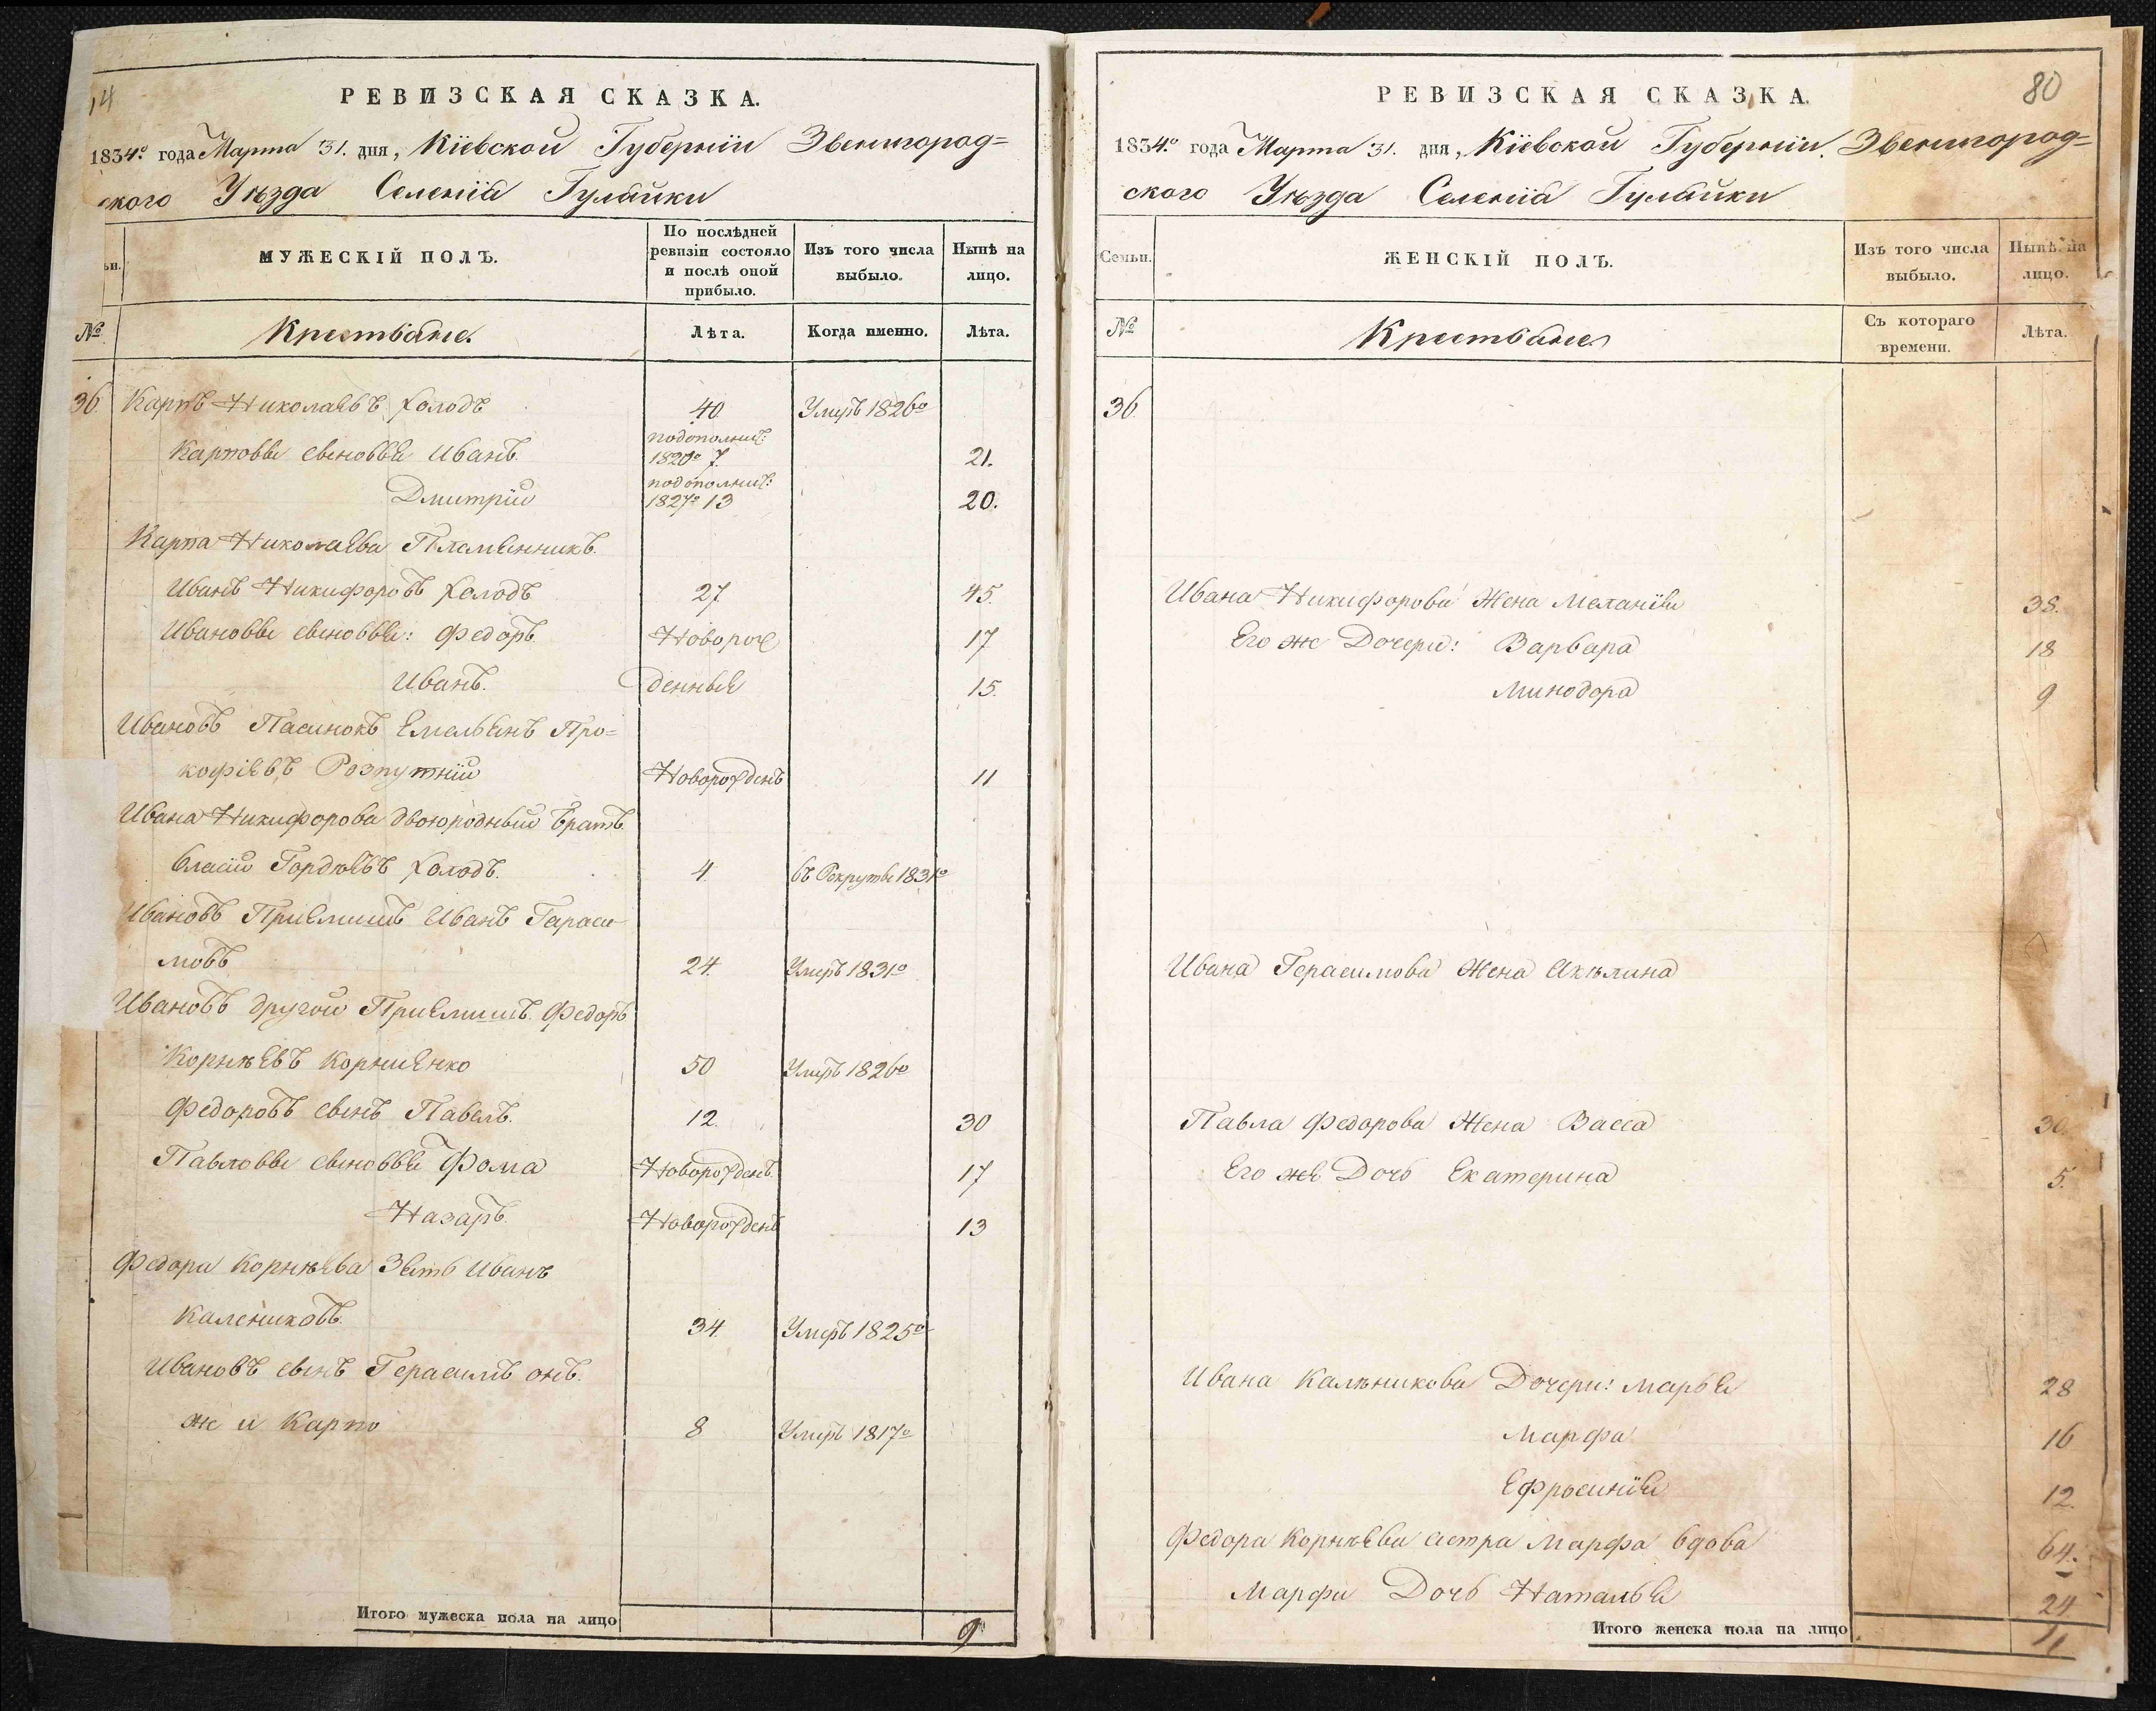 14
РЕВИЗСКАЯ СКАЗКА.
1834.º года Марта 31. дня, Кіевской Губерніи Звенигород=
ского Уѣзда Селенія Гулайки
ьи.
МУЖЕСКІЙ ПОЛЪ.
По послѣдней ревизіи состояло и послѣ оной прибыло.
Изъ того числа выбыло.
Нынѣ на лицо.
№
Крестьяне.
Лѣта.
Когда именно.
Лѣта.
36. Карпъ Николаевъ Холодъ 40 Умеръ 1826º
подополнит:
Карповы сыновья Иванъ. 1820º 7. 21.
подополнит:
Дмитрій 1827º 13 20.
Карпа Николаева Племянникъ.
Иванъ Никифоровъ Холодъ 27 45.
Ивановы сыновья: Федоръ. Новорож 17
Иванъ. денные 15.
Ивановъ Пасинокъ Емельянъ Про=
кофіевъ Розпутній Новорожденъ 11
Ивана Никифорова двоюродный братъ.
Власій Гордѣевъ Холодъ. 4. въ Рекруты 1831º
Ивановъ Приемишъ Иванъ Гараси
мовъ 24. Умеръ 1831º
Ивановъ другой Приемишъ Федоръ
Корнѣевъ Корниенко 50 Умеръ 1826º
Федоровъ сынъ Павелъ. 12. 30
Павловы сыновья Фома Новорожденъ. 17
Назаръ. Новорожденъ 13
Федора Корнѣева Зять Иванъ
Калениковъ. 34. Умеръ 1825º
Ивановъ сынъ Герасимъ онъ.
же и Карпо 8 Умеръ 1817º
Итого мужеска пола на лицо 9
80
РЕВИЗСКАЯ СКАЗКА.
1834.º года Марта 31. дня, Кіевской Губерніи. Звенигород=
ского Уѣзда Селенія Гулайки
Семьи.
ЖЕНСКІЙ ПОЛЪ.
Изъ того числа выбыло.
Нынѣ на лицо.
№
Крестьяне
Съ котораго времени.
Лѣта.
36.
Ивана Никифорова Жена Меланія 38.
Его же Дочери: Варвара 18
Минодора 9
Ивана Герасимова Жена Акѣлина
Павла Федорова Жена Васса 30.
Его же Дочь Екатерина 5.
Ивана Калѣникова Дочери: Марья 28
Марфа 16
Ефросинія 12.
Федора Корнѣева систра Марфа вдова 64.
Марфи Дочь Наталья 24
Итого женска пола на лицо 11